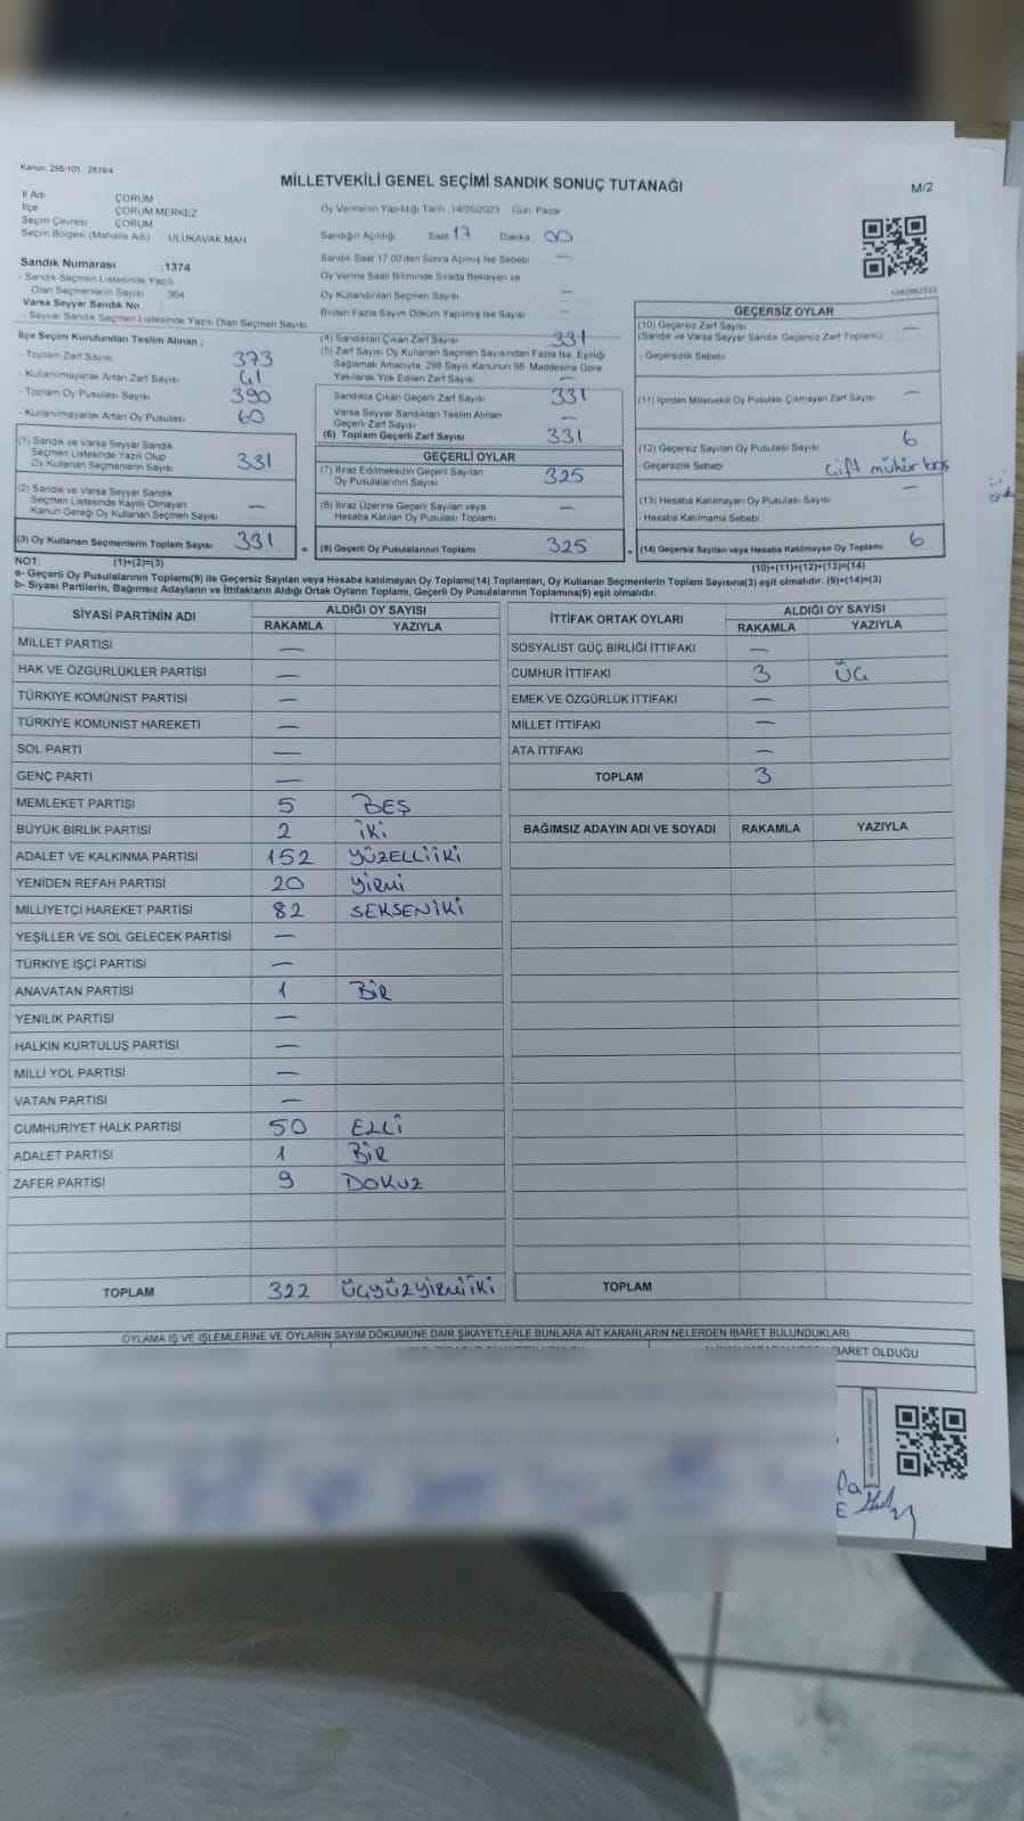 Kanun: 298/105 : 2839/4
MİLLETVEKİLİ GENEL SEÇİMİ SANDIK SONUÇ TUTANAĞI
M/2
İl Adı ÇORUM
İlçe ÇORUM MERKEZ
Seçim Çevresi ÇORUM
Seçim Bölgesi (Mahalle Adı) ULUKAVAK MAH
Oy Vermenin Yapıldığı Tarih : 14/05/2023 Gün: Pazar
Sandığın Açıldığı Saat 17 Dakika 00
Sandık Saat 17.00'den Sonra Açılmış İse Sebebi —
Oy Verme Saati Bitiminde Sırada Bekleyen ve
Oy Kullandırılan Seçmen Sayısı —
Birden Fazla Sayım Döküm Yapılmış İse Sayısı —
Sandık Numarası : 1374
- Sandık Seçmen Listesinde Yazılı
Olan Seçmenlerin Sayısı 364
Varsa Seyyar Sandık No
- Seyyar Sandık Seçmen Listesinde Yazılı Olan Seçmen Sayısı
İlçe Seçim Kurulundan Teslim Alınan ;
- Toplam Zarf Sayısı 373
- Kullanılmayarak Artan Zarf Sayısı 41
- Toplam Oy Pusulası Sayısı 390
- Kullanılmayarak Artan Oy Pusulası 60
(1) Sandık ve Varsa Seyyar Sandık
Seçmen Listesinde Yazılı Olup
Oy Kullanan Seçmenlerin Sayısı 331
(2) Sandık ve Varsa Seyyar Sandık
Seçmen Listesinde Kayıtlı Olmayan
Kanun Gereği Oy Kullanan Seçmen Sayısı —
(3) Oy Kullanan Seçmenlerin Toplam Sayısı 331
(1)+(2)=(3)
(4) Sandıktan Çıkan Zarf Sayısı 331
(5) Zarf Sayısı Oy Kullanan Seçmen Sayısından Fazla İse, Eşitliği
Sağlamak Amacıyla, 298 Sayılı Kanunun 98. Maddesine Göre
Yakılarak Yok Edilen Zarf Sayısı —
Sandıkta Çıkan Geçerli Zarf Sayısı 331
Varsa Seyyar Sandıktan Teslim Alınan
Geçerli Zarf Sayısı —
(6) Toplam Geçerli Zarf Sayısı 331
GEÇERLİ OYLAR
(7) İtiraz Edilmeksizin Geçerli Sayılan
Oy Pusulalarının Sayısı 325
(8) İtiraz Üzerine Geçerli Sayılan veya
Hesaba Katılan Oy Pusulası Toplamı —
= (9) Geçerli Oy Pusulalarının Toplamı 325
GEÇERSİZ OYLAR
(10) Geçersiz Zarf Sayısı —
(Sandık ve Varsa Seyyar Sandık Geçersiz Zarf Toplamı)
- Geçersizlik Sebebi
(11) İçinden Milletvekili Oy Pusulası Çıkmayan Zarf Sayısı —
(12) Geçersiz Sayılan Oy Pusulası Sayısı 6
- Geçersizlik Sebebi çift mühür
(13) Hesaba Katılmayan Oy Pusulası Sayısı —
- Hesaba Katılmama Sebebi
+ (14) Geçersiz Sayılan veya Hesaba Katılmayan Oy Toplamı 6
(10)+(11)+(12)+(13)=(14)
NOT:
a- Geçerli Oy Pusulalarının Toplamı(9) ile Geçersiz Sayılan veya Hesaba katılmayan Oy Toplamı(14) Toplamları, Oy Kullanan Seçmenlerin Toplam Sayısına(3) eşit olmalıdır. (9)+(14)=(3)
b- Siyasi Partilerin, Bağımsız Adayların ve İttifakların Aldığı Ortak Oyların Toplamı, Geçerli Oy Pusulalarının Toplamına(9) eşit olmalıdır.
SİYASİ PARTİNİN ADI ALDIĞI OY SAYISI
RAKAMLA YAZIYLA
MİLLET PARTİSİ —
HAK VE ÖZGÜRLÜKLER PARTİSİ —
TÜRKİYE KOMÜNİST PARTİSİ —
TÜRKİYE KOMÜNİST HAREKETİ —
SOL PARTİ —
GENÇ PARTİ —
MEMLEKET PARTİSİ 5 BEŞ
BÜYÜK BİRLİK PARTİSİ 2 İKİ
ADALET VE KALKINMA PARTİSİ 152 YÜZELLİİKİ
YENİDEN REFAH PARTİSİ 20 YİRMİ
MİLLİYETÇİ HAREKET PARTİSİ 82 SEKSENİKİ
YEŞİLLER VE SOL GELECEK PARTİSİ —
TÜRKİYE İŞÇİ PARTİSİ —
ANAVATAN PARTİSİ 1 BİR
YENİLİK PARTİSİ —
HALKIN KURTULUŞ PARTİSİ —
MİLLİ YOL PARTİSİ —
VATAN PARTİSİ —
CUMHURİYET HALK PARTİSİ 50 ELLİ
ADALET PARTİSİ 1 BİR
ZAFER PARTİSİ 9 DOKUZ
TOPLAM 322 ÜÇYÜZYİRMİİKİ
İTTİFAK ORTAK OYLARI ALDIĞI OY SAYISI
RAKAMLA YAZIYLA
SOSYALİST GÜÇ BİRLİĞİ İTTİFAKI —
CUMHUR İTTİFAKI 3 ÜÇ
EMEK VE ÖZGÜRLÜK İTTİFAKI —
MİLLET İTTİFAKI —
ATA İTTİFAKI —
TOPLAM 3
BAĞIMSIZ ADAYIN ADI VE SOYADI RAKAMLA YAZIYLA
TOPLAM
OYLAMA İŞ VE İŞLEMLERİNE VE OYLARIN SAYIM DÖKÜMÜNE DAİR ŞİKAYETLERLE BUNLARA AİT KARARLARIN NELERDEN İBARET BULUNDUKLARI
İBARET OLDUĞU